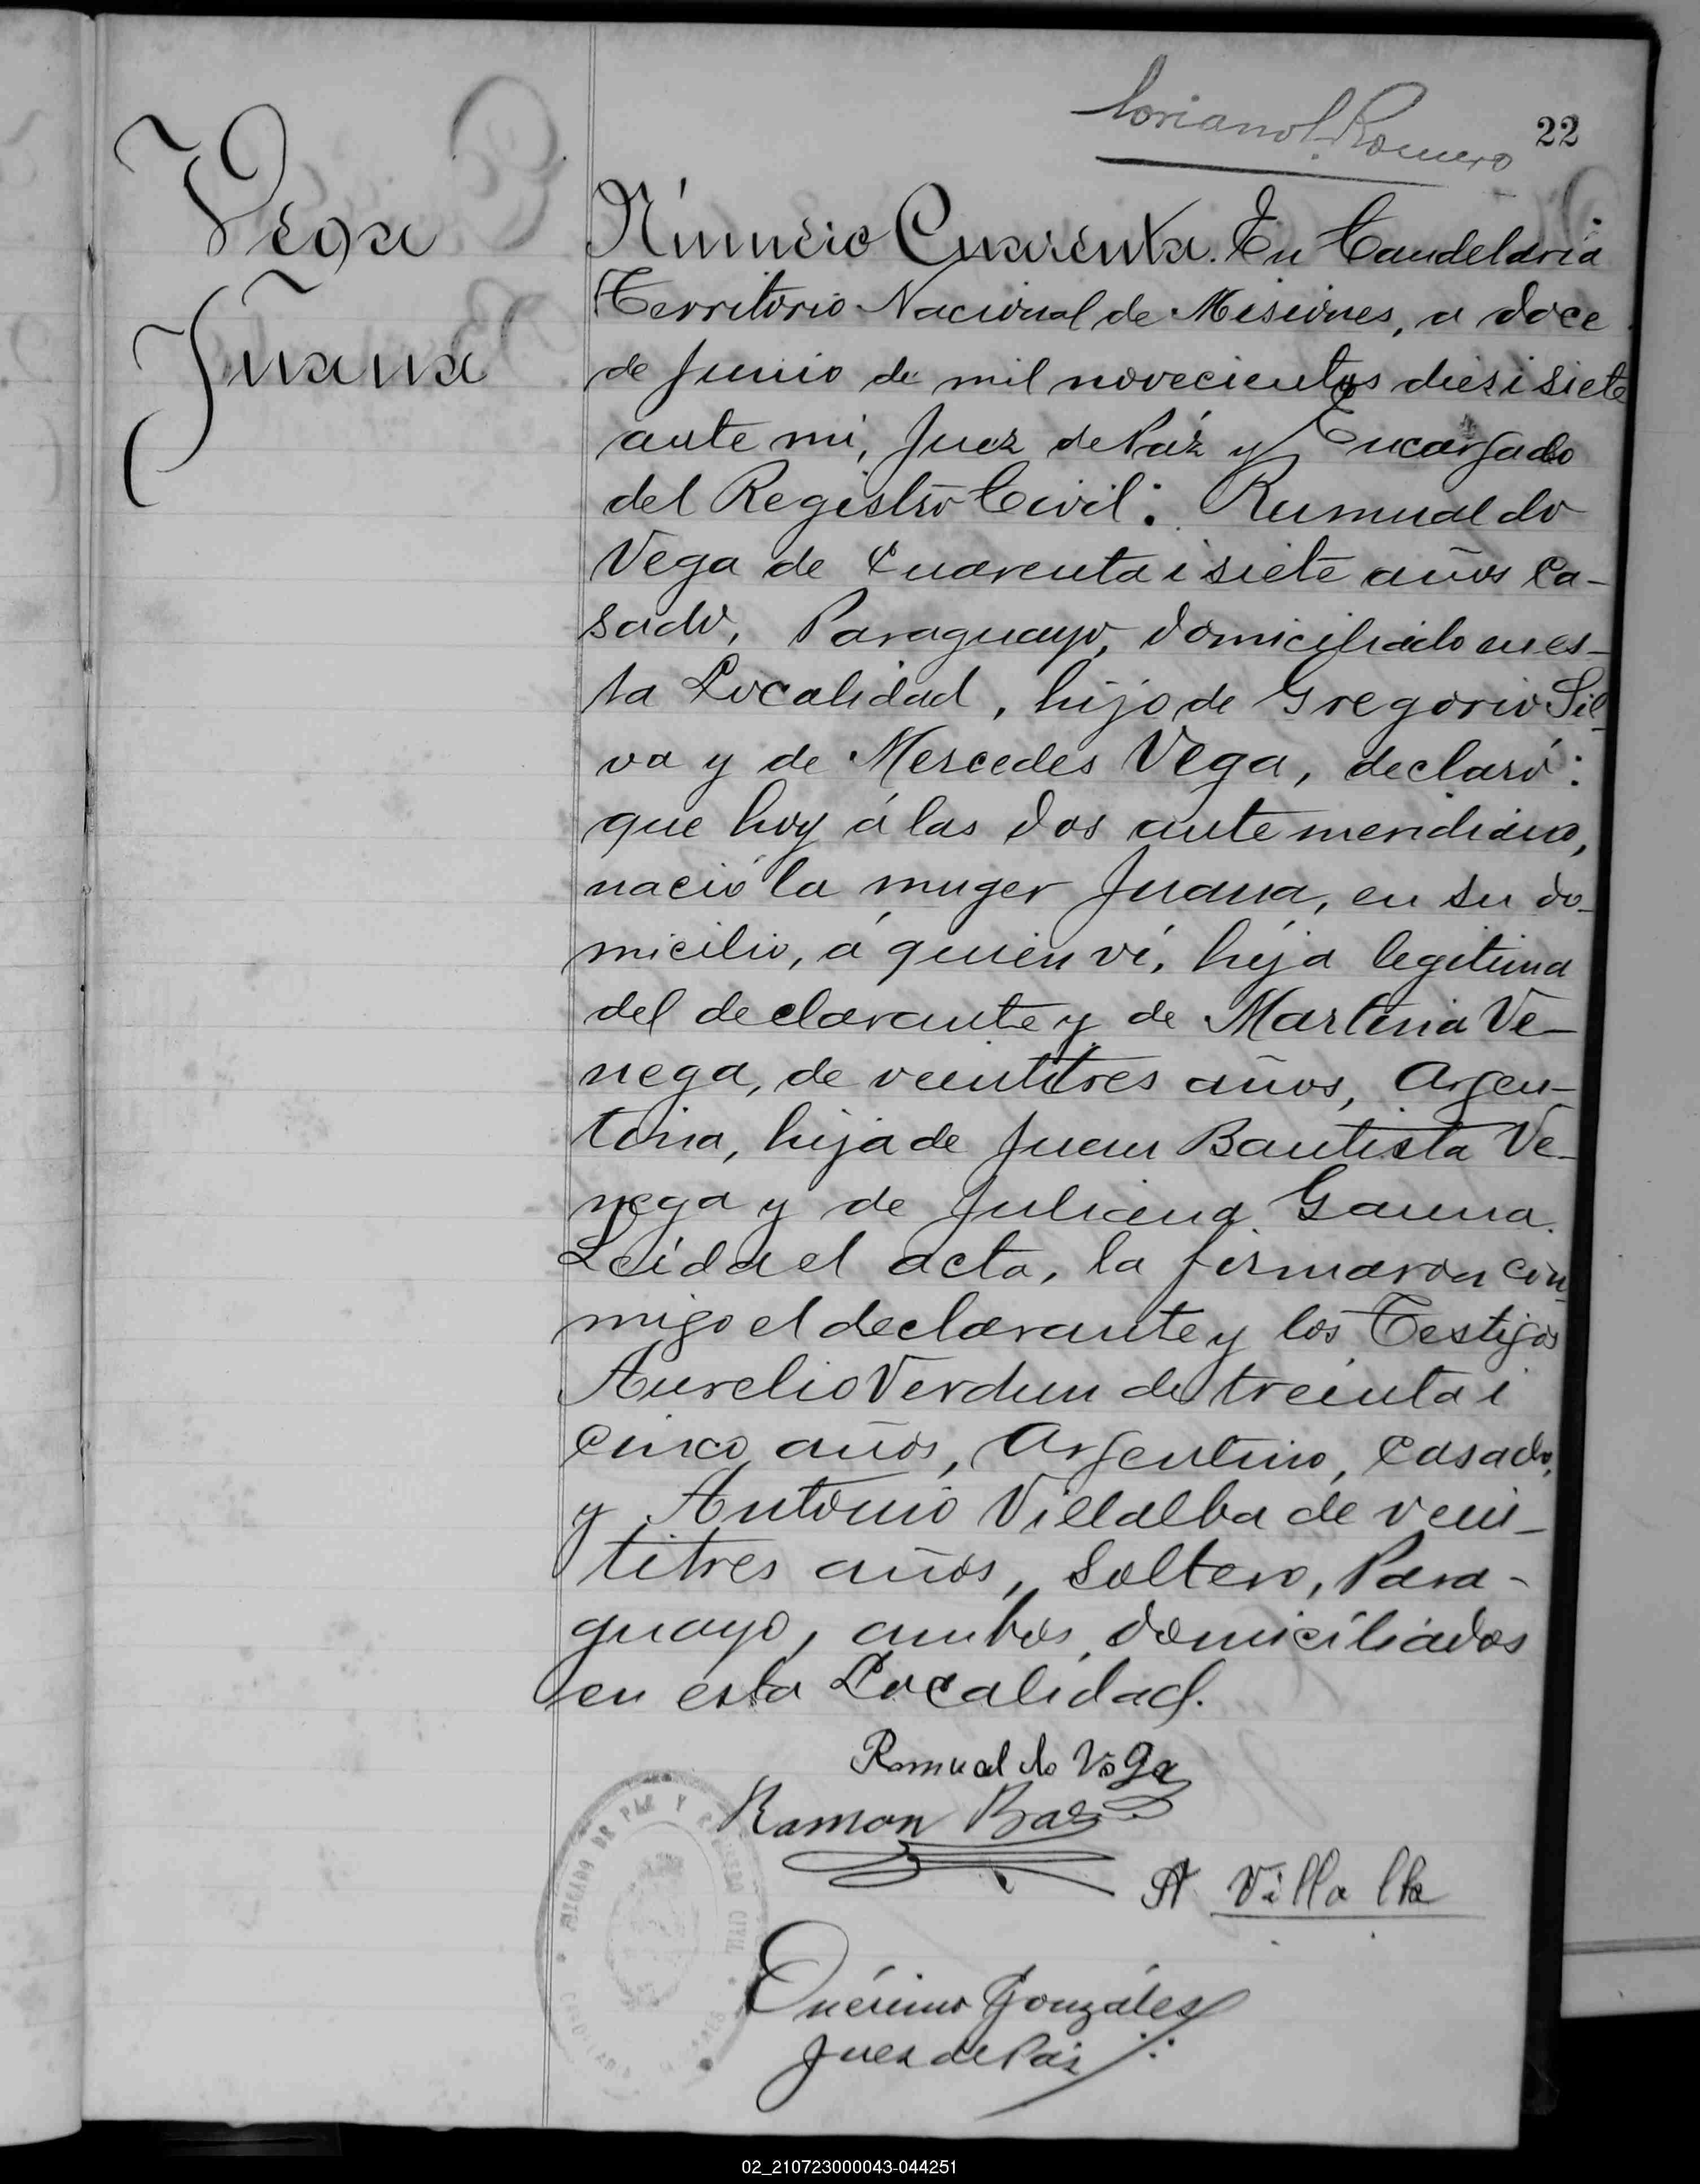 Soriano L. Romero
22
Vega
Juana
Número Cuarenta. En Candelaria
Territorio Nacional de Misiones, a doce
de Junio de mil novecientos diesisiete
ante mi, Juez de Páz y Encargado
del Registro Civil: Rumualdo
Vega de Cuarenta i siete años Ca-
sado, Paraguayo, domiciliado en es-
ta Localidad, hijo de Gregorio Sil-
va y de Mercedes Vega, declaró:
que hoy á las dos ante meridiano,
nació la muger Juana, en su do-
micilio, á quien ví, hija legitima
del declarante y de Martina Ve-
nega, de veintitres años, Argen-
tina, hija de Juan Bautista Ve-
nega y de Juliana Gauna.
Leida el acta, la firmaron con-
migo el declarante y los Testigos
Aurelio Verdun de treinta i
cinco años, Argentino, Casado,
y Antonio Villalba de vein-
titres años, Soltero, Para-
guayo, ambos domiciliados
en esta Localidad.
Romualdo Vega
Ramon Baez
A Villalba
González
Juez de Paz
JUZGADO DE PAZ Y REGISTRO CIVIL
02_210723000043-044251